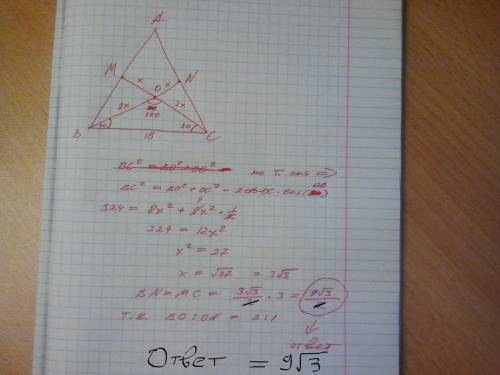 A
M
N
x
x
O
2x
120
2x
30
30
B
18
C
BC² = BO² + OC² по Т. cos ⇒
BC² = BO² + OC² - 2OB·OC·cos(120)
324 = 8x² + x² · 1/2
324 = 12x²
x² = 27
x = √27 = 3√3
BN = MC = 3√3 · 3 = 9√3
Т.к. BO : ON = 2:1
ответ
Ответ = 9√3